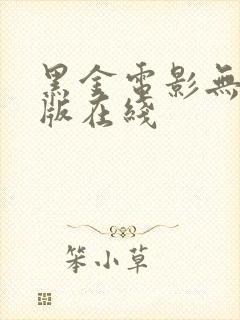 黑金電影無
版在綫
笨小草